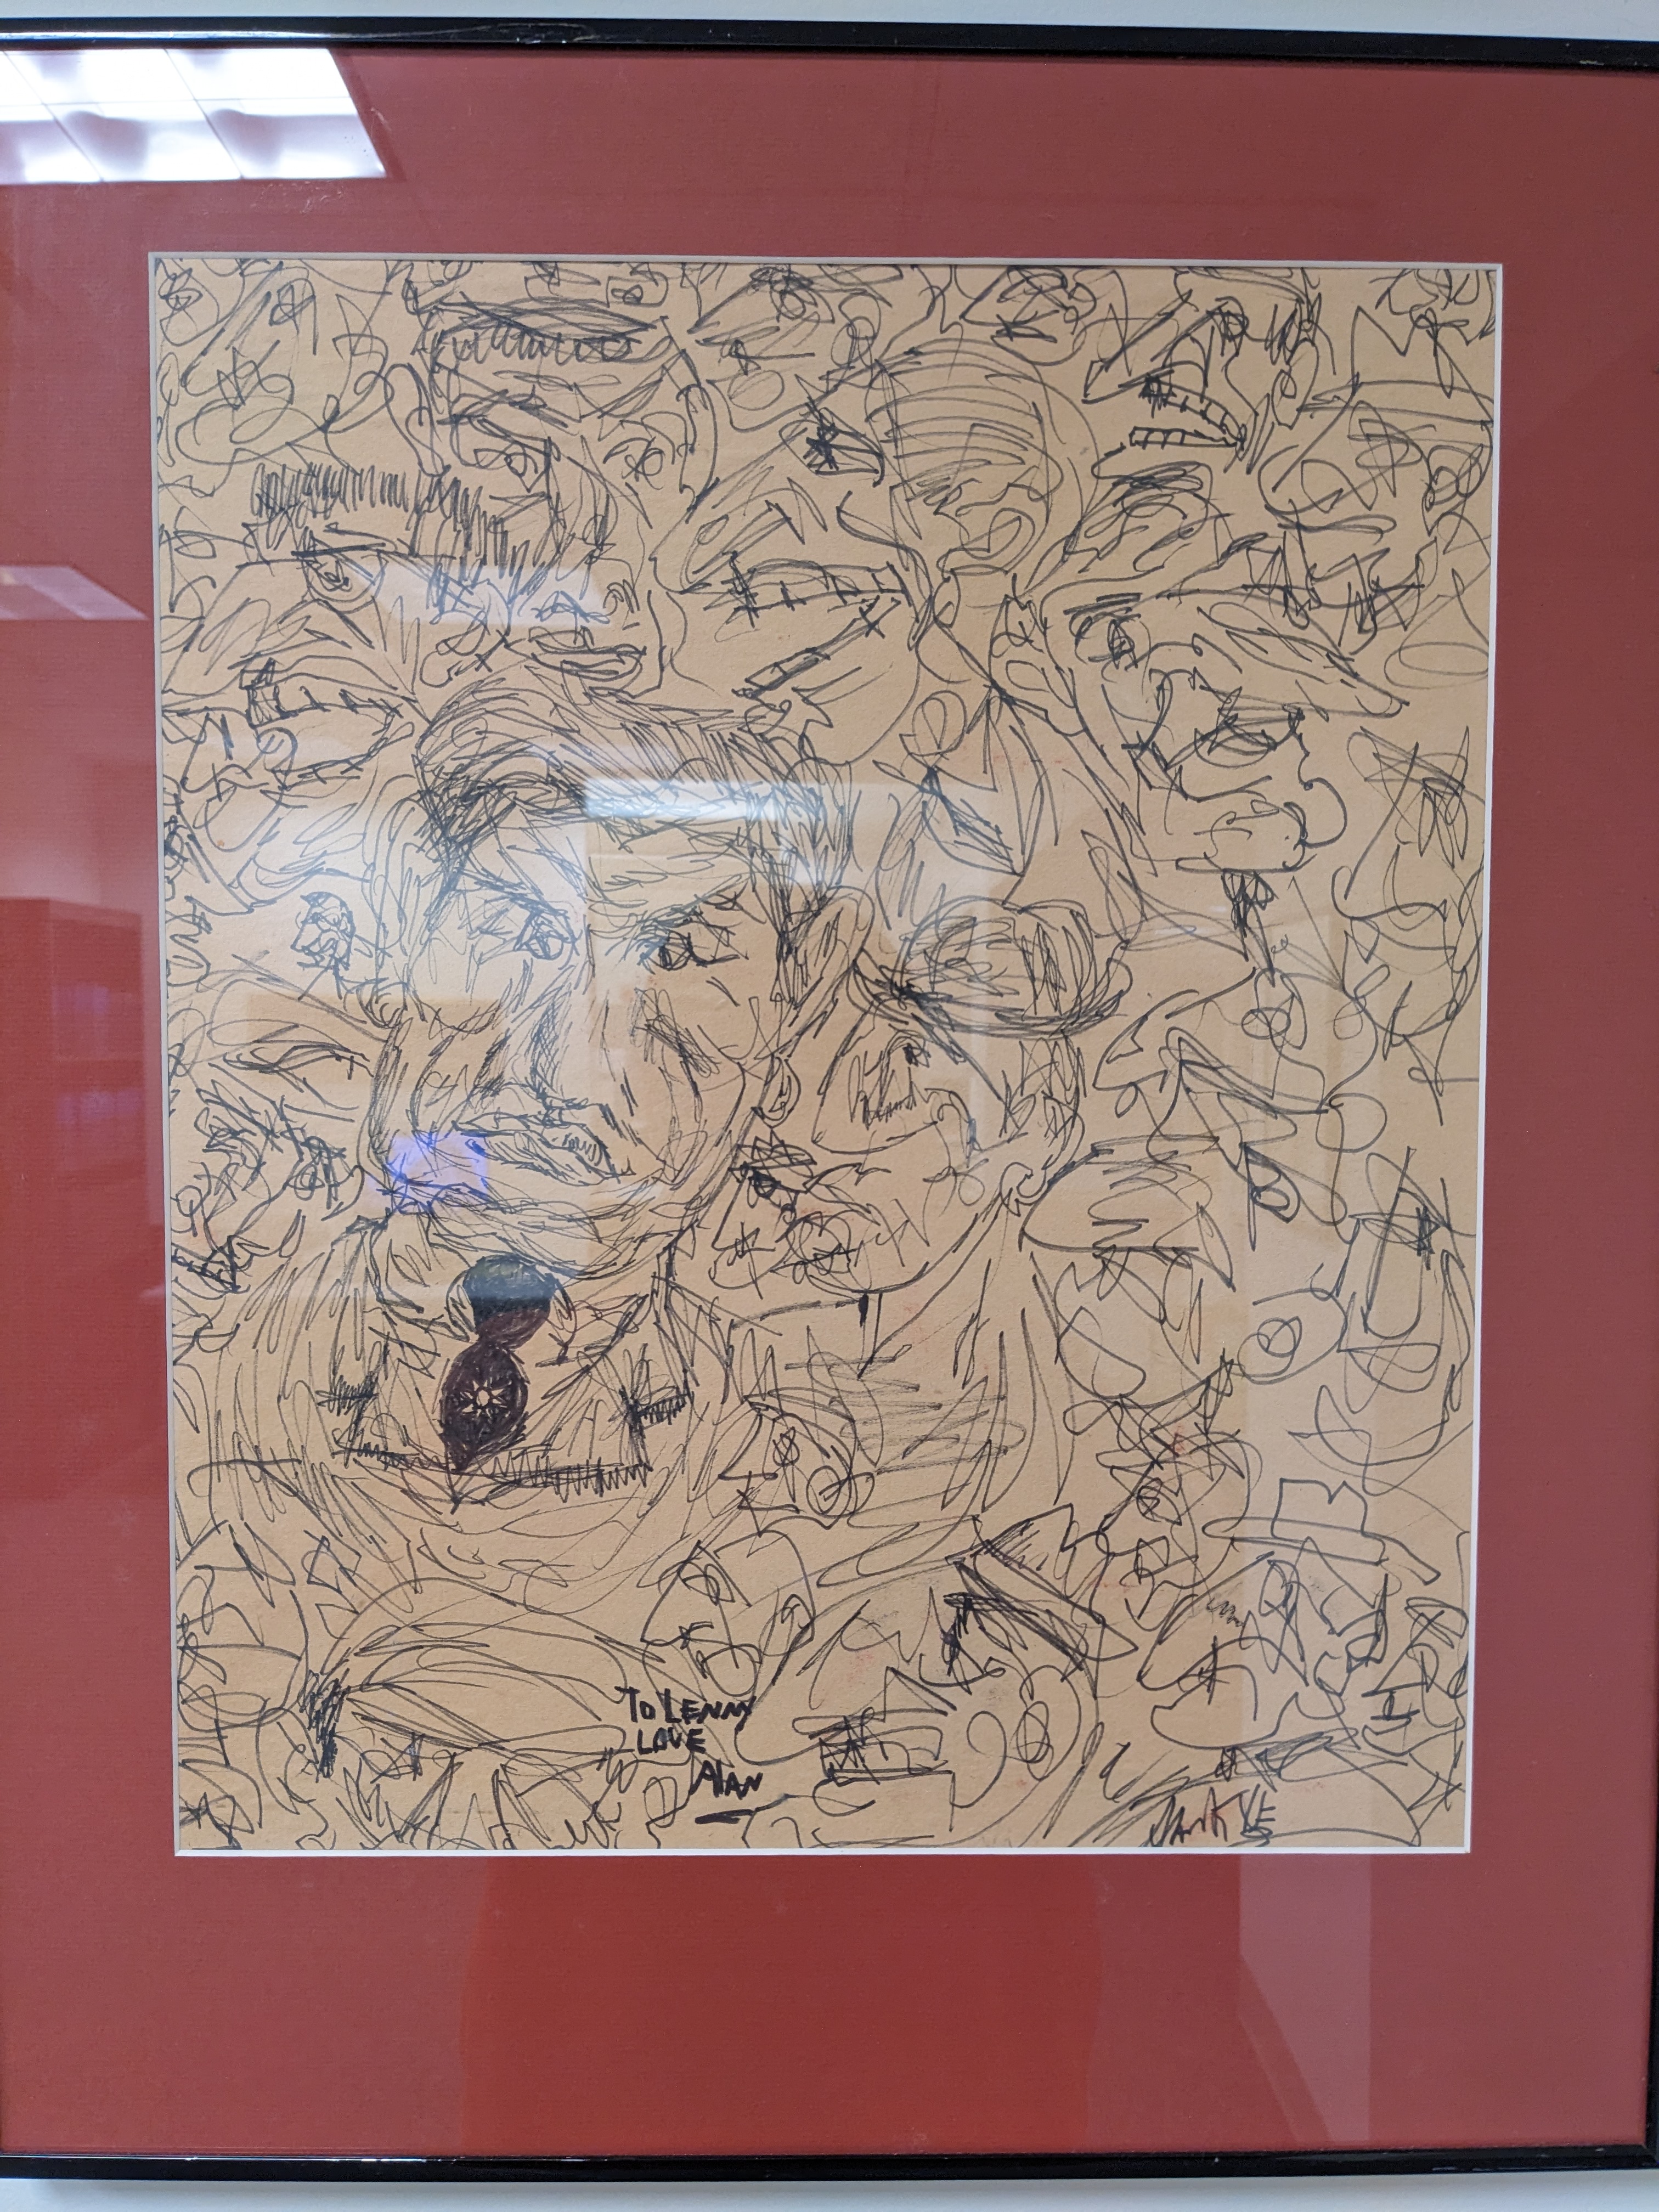 To LENNY
LOVE
AlAN